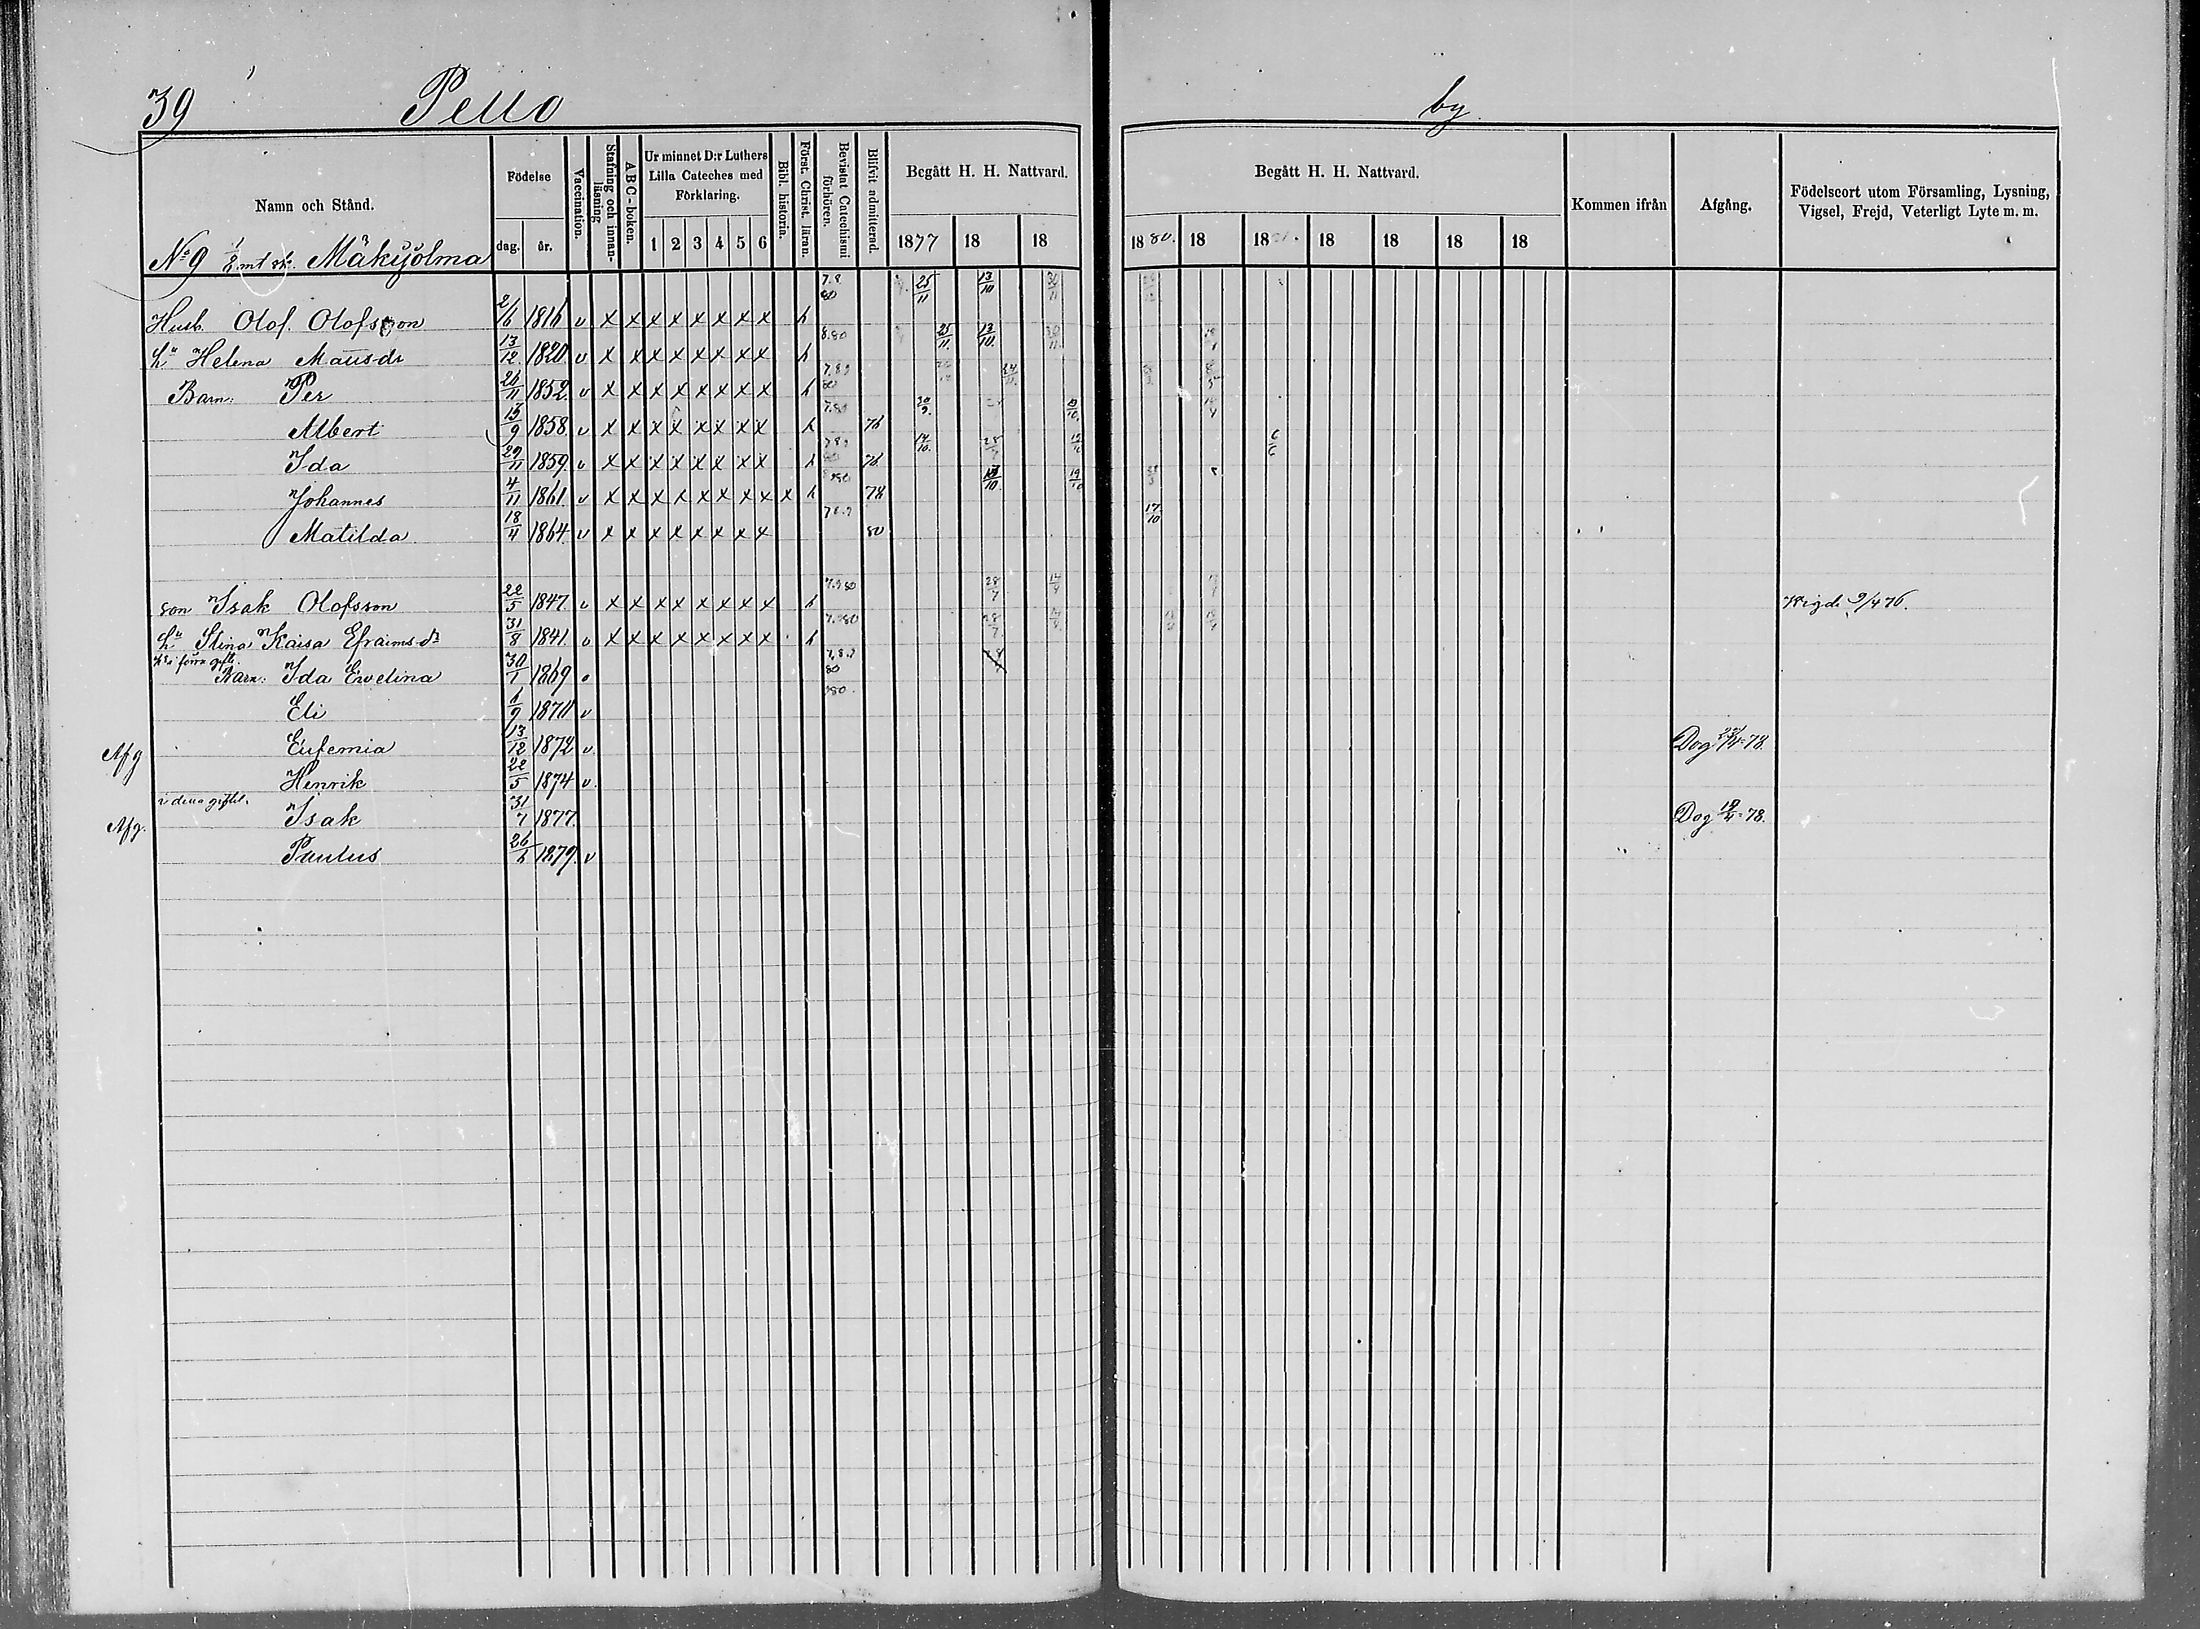 39 Pello by
Namn och Stånd. Födelse Vaccination. Stafning och innanläsning A B C-boken. Ur minnet D:r Luthers Lilla Cateches med Förklaring. Bibl. historia. Först. Christ. läran. Bevistat Catechismi förhören. Blifvit admitterad. Begått H. H. Nattvard. Begått H. H. Nattvard. Kommen ifrån Afgång. Födelseort utom Församling, Lysning, Vigsel, Frejd, Veterligt Lyte m. m.
dag. år. 1 2 3 4 5 6 1877 18 18 1880. 18 18 18 18 18 18
No 9 Mäkijölma
Husb. Olof Olofsson 2/6 1816 v x x x x x x x x h 7.8. 80 25/11 13/10
Hu Helena Mausdr 13/12 1820 v x x x x x x x x h 8.80 25/11. 13/10. 30/11
Barn: Per 26/11 1852. v x x x x x x x x h 7.89 80
Albert 15/9 1858. v x x x x x x x x h 76 30/9.
Ida 29/11 1859. v x x x x x x x x h 789 76 14/10. 28/7 6/6
Johannes 4/11 1861. v x x x x x x x x x h 78 13/10. 19/10
Matilda 18/4 1864 v x x x x x x x x 80 17/10
son Isak Olofsson 22/5 1847. v x x x x x x x x h 7.980 28/7 14/9 Vigde 9/4 76.
Hu Stina Kaisa Efraimsdr 31/8 1841. v x x x x x x x x h 7.980 28/7
i förra gifte.
Barn: Ida Evelina 30/1 1869 80
Eli 1870 v 980.
Afg Eufemia 13/12 1872 v. Dog 78.
Henrik 22/5 1874 v.
i detta giftet.
Afg. Isak 31/7 1877. Dog 78.
Paulus 1879. v